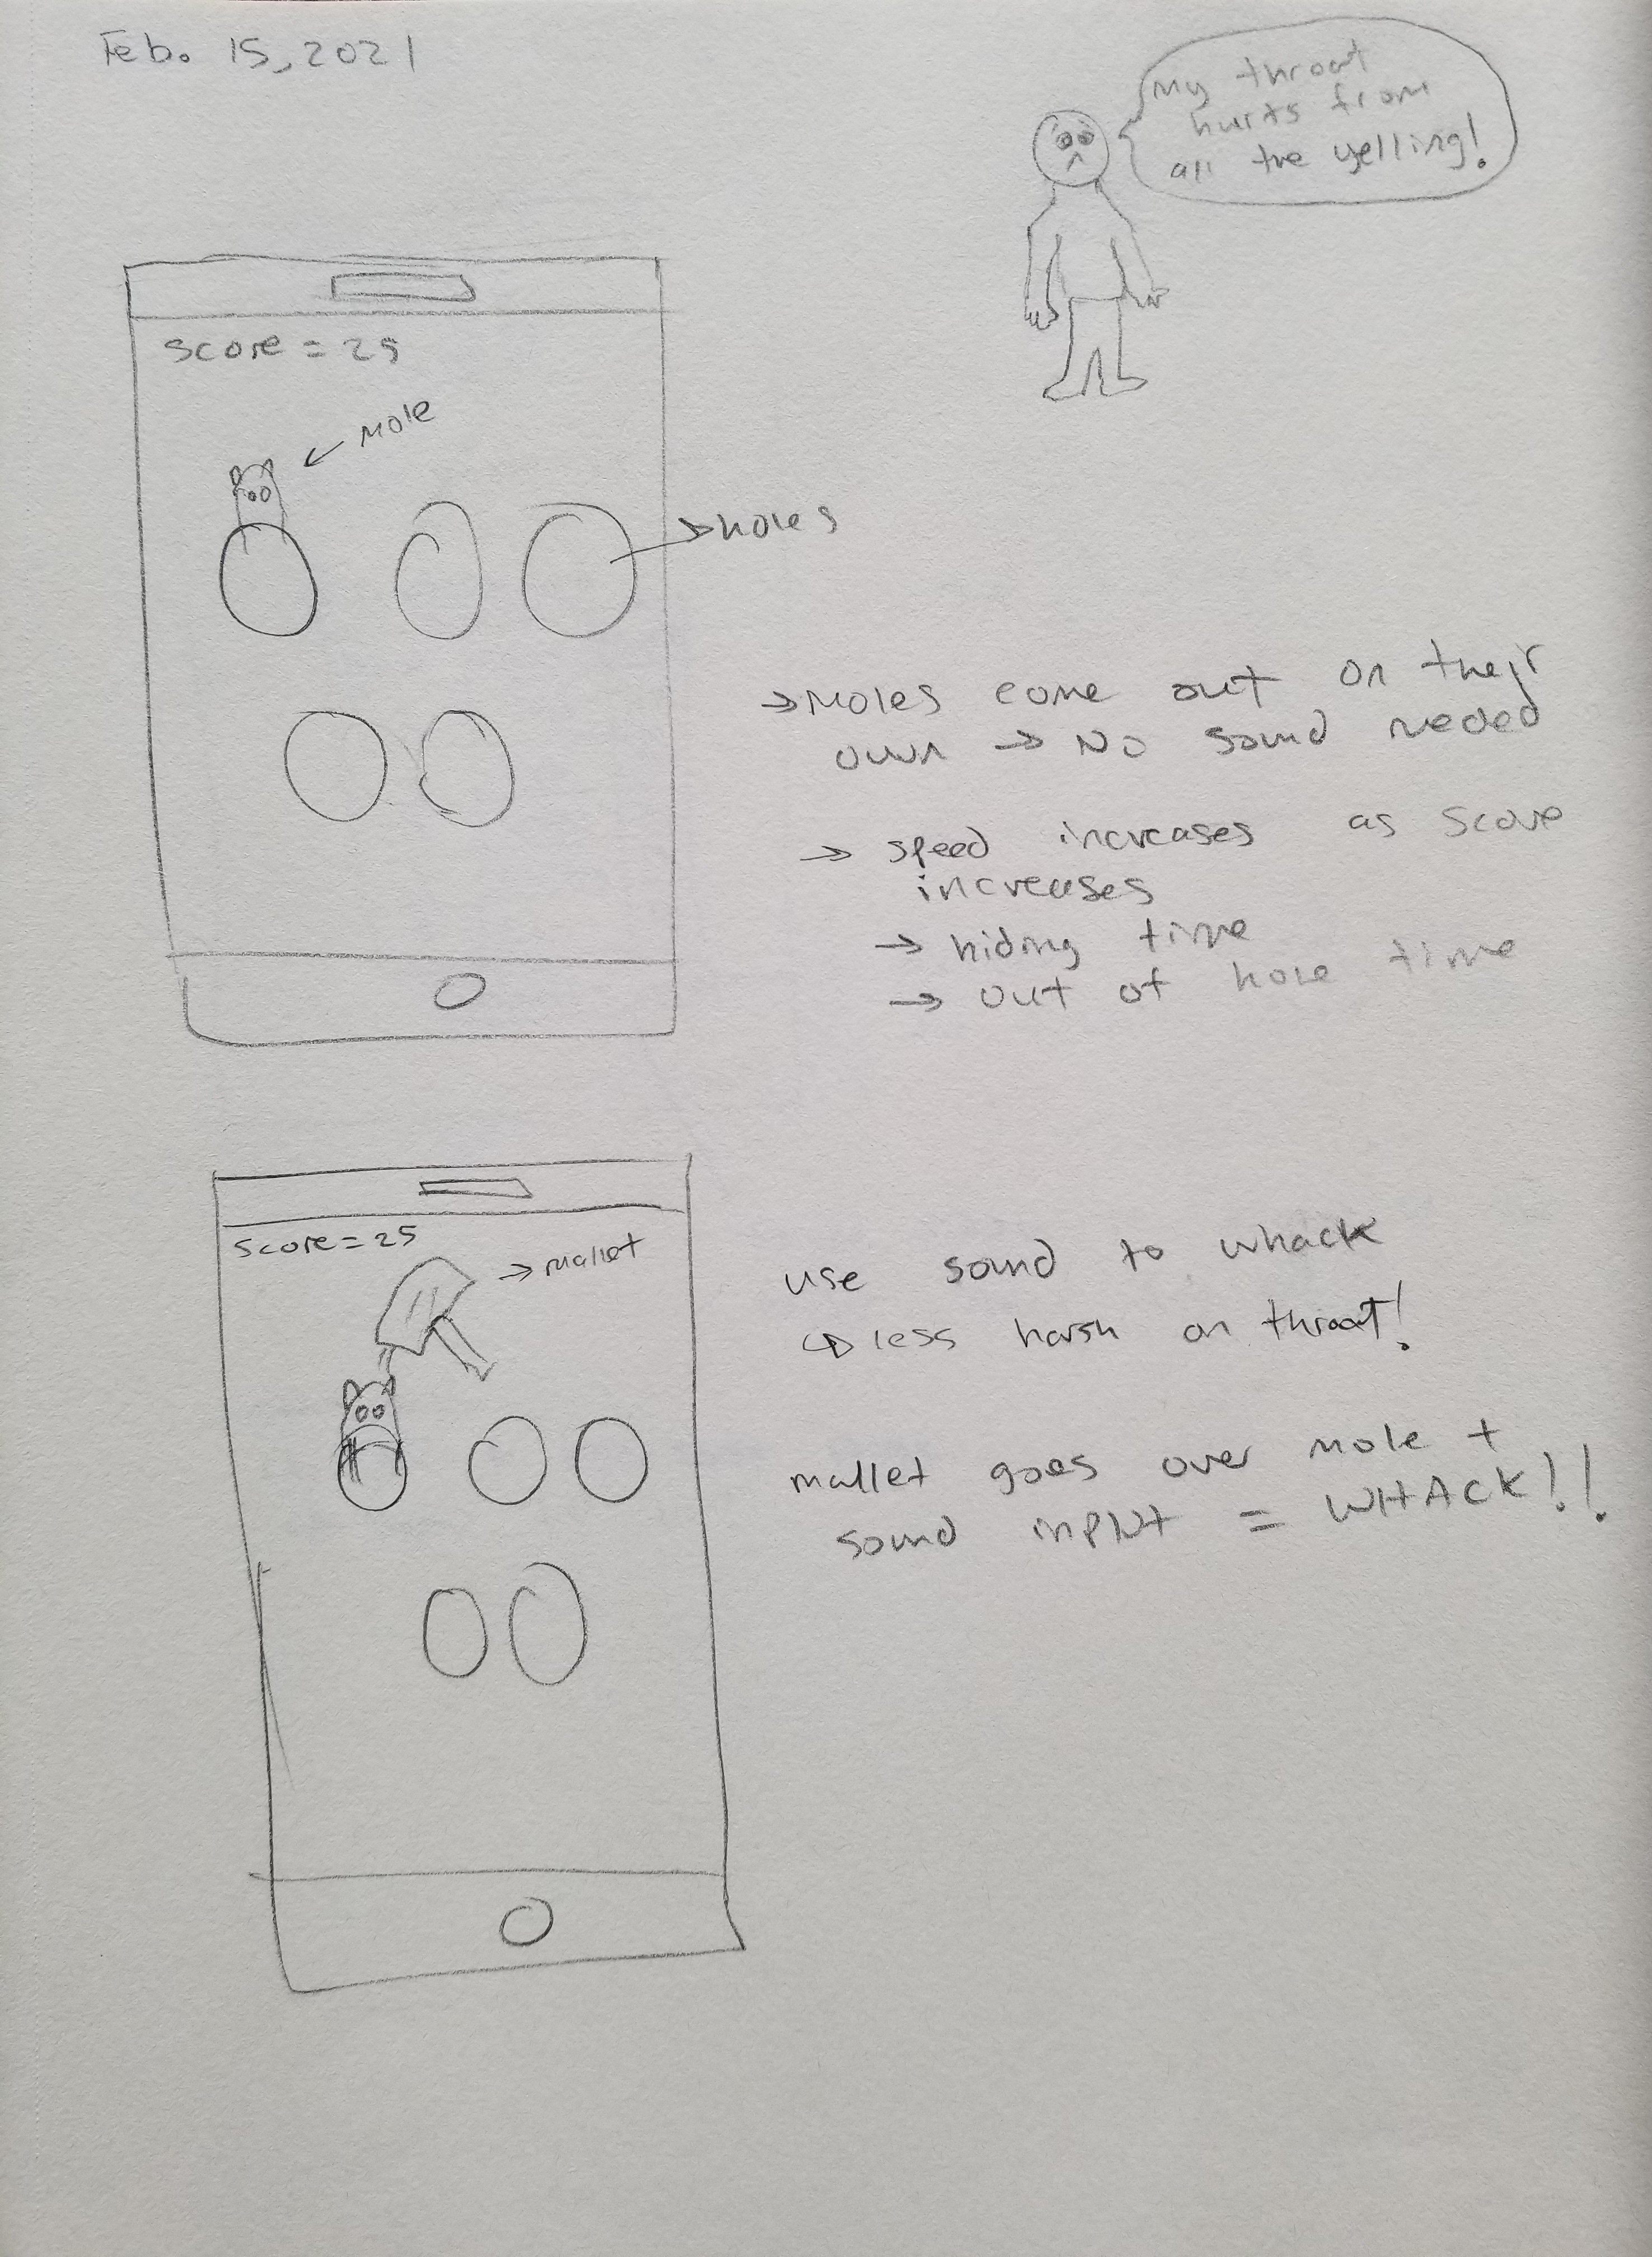 Feb. 15, 2021
My throat
hurts from
all the yelling!
Score = 25
Mole
holes
→ Moles come out on their
own → No sound needed
→ speed increases as score
increases
→ hiding time
→ out of hole time
Score = 25
→ mallet
use sound to whack
↳ less harsh on throat!
mallet goes over mole +
sound input = WHACK!!